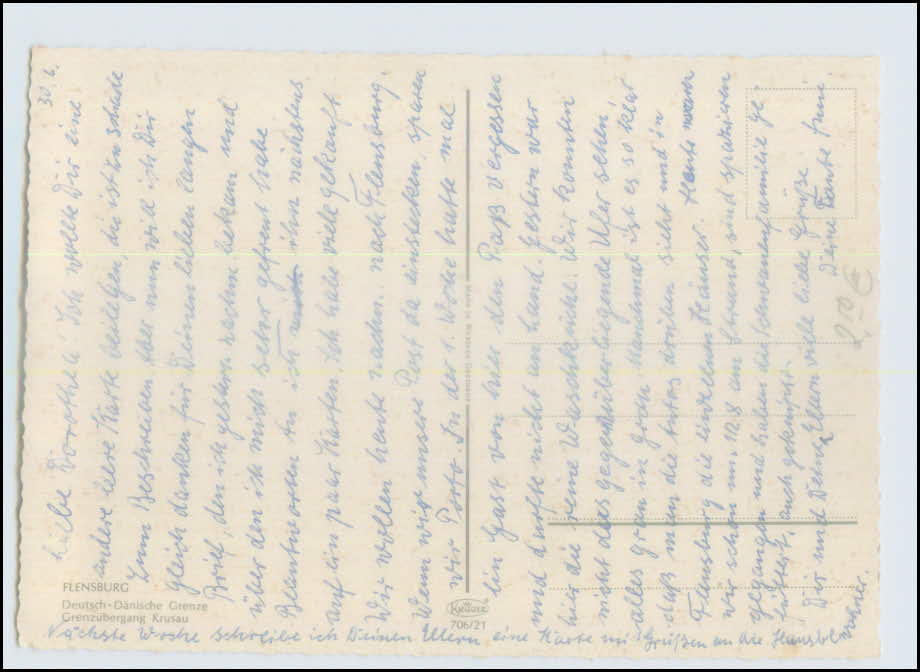 30. 6.
Liebe Dorothea! Ich wollte Dir eine
andere leere Karte beilegen, die ist zu schade
zum Beschreiben. Aber nun will ich Dir
gleich danken für Deinen lieben langen
Brief, den ich gestern nachm. bekam und
über den ich mich sehr gefreut habe
Beantworten tu ich ihn nächstens
auf ein paar Karten. Ich habe viele gekauft.
Wir wollen heute nachm. nach Flensburg.
Wenn wir unsere Post da einstecken, sparen
wir Porto. In der 1. Woche hatte mal
ein Gast von hier den Paß vergessen
und durfte nicht an Land. Gestern war
hier die reine Waschküche. Wir konnten
nicht das gegenüberliegende Ufer sehen,
alles grau in grau. Manchmal ist es so klar
daß man die Autos drüben sieht und in
Flensburg die einzelnen Häuser. Heute waren
wir schon um 1/2 8 am Strand, sind spazieren
gegangen und haben die Schwanenfamilie ge-
füttert, auch geknipst.
Dir und Deinen Eltern viele liebe Grüße
Deine Tante Anni
FLENSBURG
Deutsch-Dänische Grenze
Grenzübergang Krusau
Krüger
706/21
Nächste Woche schreibe ich Deinen Eltern eine Karte mit Grüßen an die Hausbewohner.
2,50 €